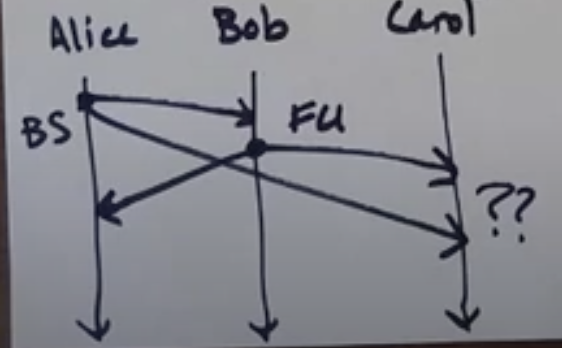 Alice Bob Carol
BS
FU
??